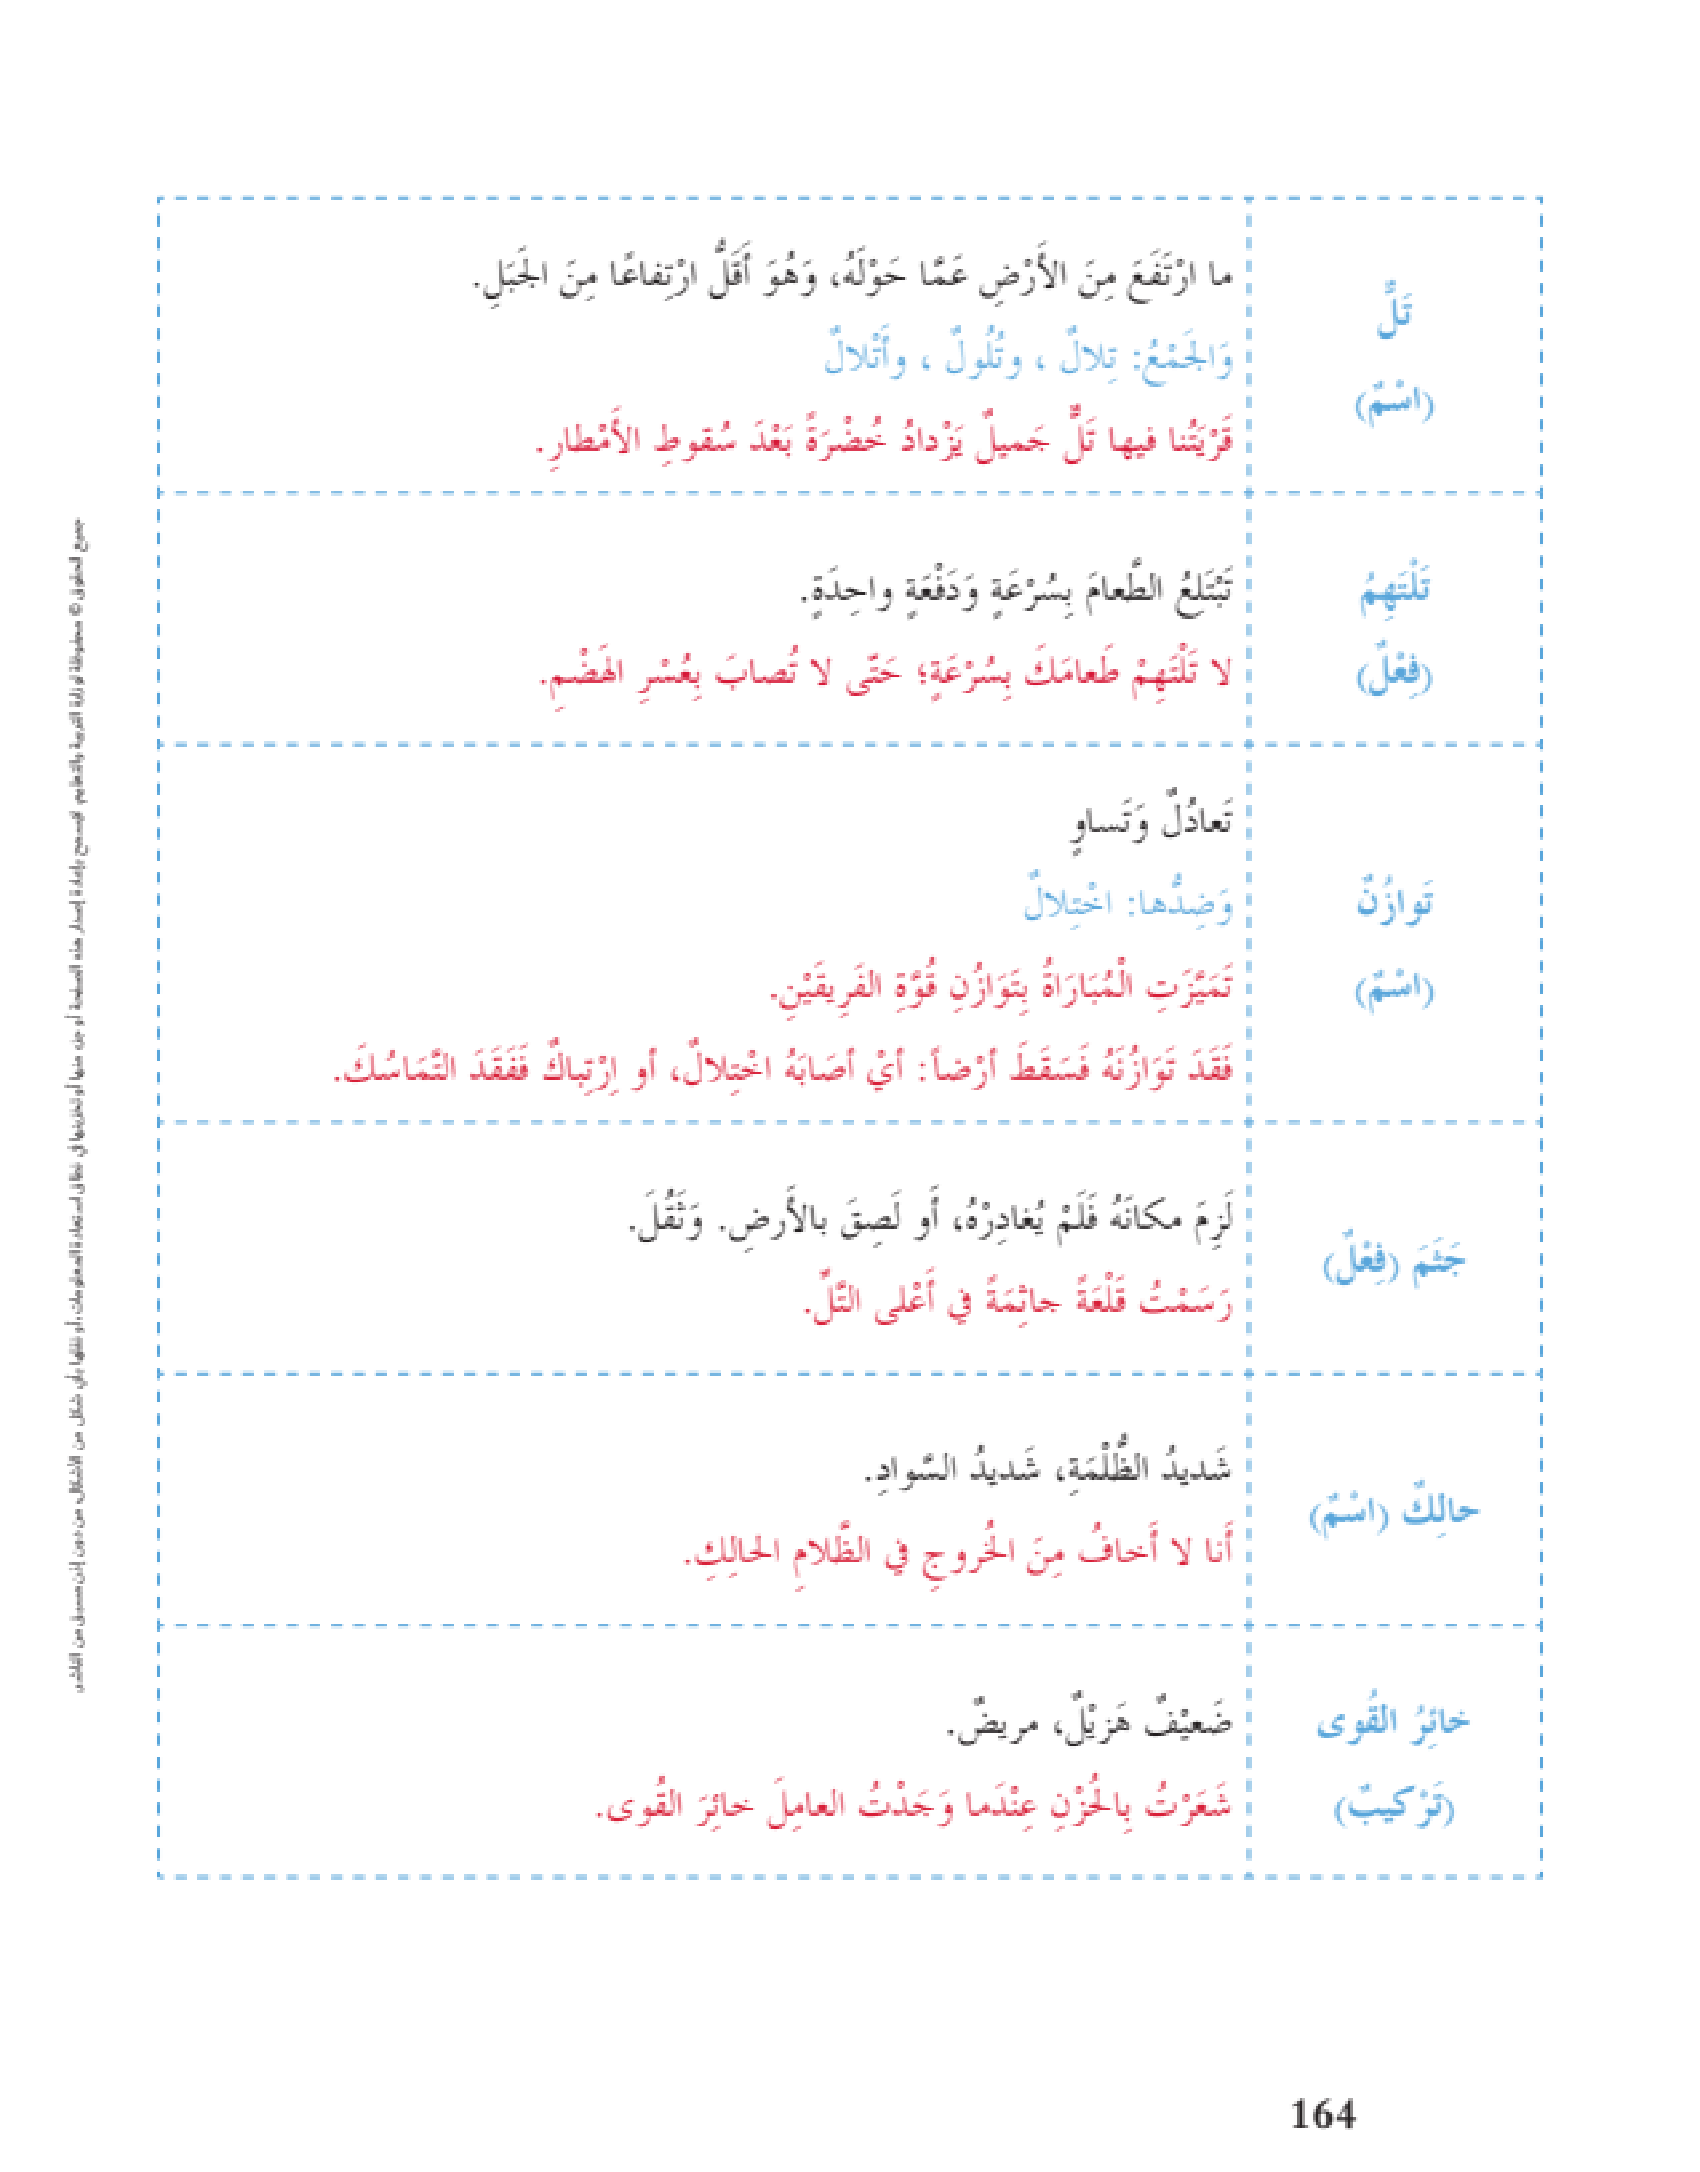 تَلٌّ
(اسْمٌ)
ما ارْتَفَعَ مِنَ الأَرْضِ عَمَّا حَوْلَهُ، وَهُوَ أَقَلُّ ارْتِفاعًا مِنَ الجَبَلِ.
وَالجَمْعُ: تِلالٌ ، وتُلُولٌ ، وأَتْلالٌ
قَرْيَتُنا فيها تَلٌّ جَميلٌ يَزْدادُ خُضْرَةً بَعْدَ سُقوطِ الأَمْطارِ.
تَلْتَهِمُ
(فِعْلٌ)
تَبْتَلِعُ الطَّعامَ بِسُرْعَةٍ وَدَفْعَةٍ واحِدَةٍ.
لا تَلْتَهِمْ طَعامَكَ بِسُرْعَةٍ؛ حَتّى لا تُصابَ بِعُسْرِ الهَضْمِ.
تَوازُنٌ
(اسْمٌ)
تَعادُلٌ وَتَساوٍ
وَضِدُّها: اخْتِلالٌ
تَمَيَّزَتِ الْمُبَارَاةُ بِتَوَازُنِ قُوَّةِ الفَرِيقَيْنِ.
فَقَدَ تَوَازُنَهُ فَسَقَطَ أرْضاً: أيْ أصَابَهُ اخْتِلالٌ، أو اِرْتِباكٌ فَفَقَدَ التَّمَاسُكَ.
جَثَمَ (فِعْلٌ)
لَزِمَ مكانَهُ فَلَمْ يُغادِرْهُ، أَو لَصِقَ بالأَرضِ. وَثَقُلَ.
رَسَمْتُ قَلْعَةً جاثِمَةً في أَعْلى التَّلِّ.
حالِكٌ (اسْمٌ)
شَديدُ الظُّلْمَةِ، شَديدُ السَّوادِ.
أَنا لا أَخافُ مِنَ الخُروجِ في الظَّلامِ الحالِكِ.
خائِرُ القُوى
(تَرْكيبٌ)
ضَعيْفٌ هَزيْلٌ، مريضٌ.
شَعَرْتُ بِالحُزْنِ عِنْدَما وَجَدْتُ العامِلَ خائِرَ القُوى.
جميع الحقوق © محفوظة لوزارة التربية والتعليم. لايسمح بإعادة إصدار هذه الصفحة أو جزء منها أو تخزينها في نطاق استعادة المعلومات، أو نقلها بأي شكل من الأشكال من دون إذن مسبق من الناشر
164